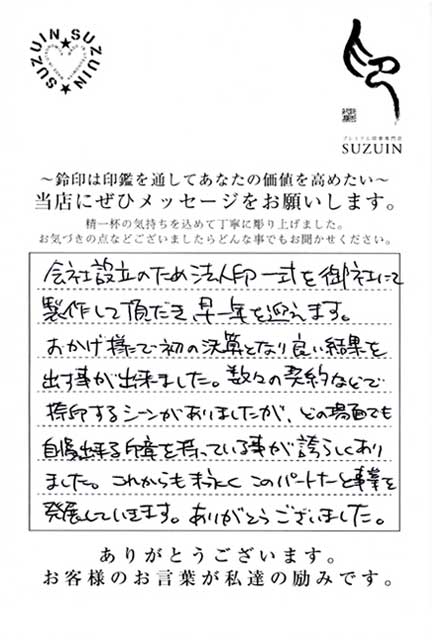 SUZUIN★SUZUIN★SUZUIN★
プレミアム印章専門店
SUZUIN
～鈴印は印鑑を通してあなたの価値を高めたい～
当店にぜひメッセージをお願いします。
精一杯の気持ちを込めて丁寧に彫り上げました。
お気づきの点などございましたらどんな事でもお聞かせください。
会社設立のため法人印一式を御社にて
製作して頂だき、早一年を迎えます。
おかげ様にて初の決算となり良い結果を
出す事が出来ました。数々の契約などで
捺印するシーンがありましたが、どの場面でも
自慢出来る印章を持っている事が誇らしくあり
ました。これからも末永くこのパートナーと事業を
発展していきます。ありがとうございました。
ありがとうございます。
お客様のお言葉が私達の励みです。